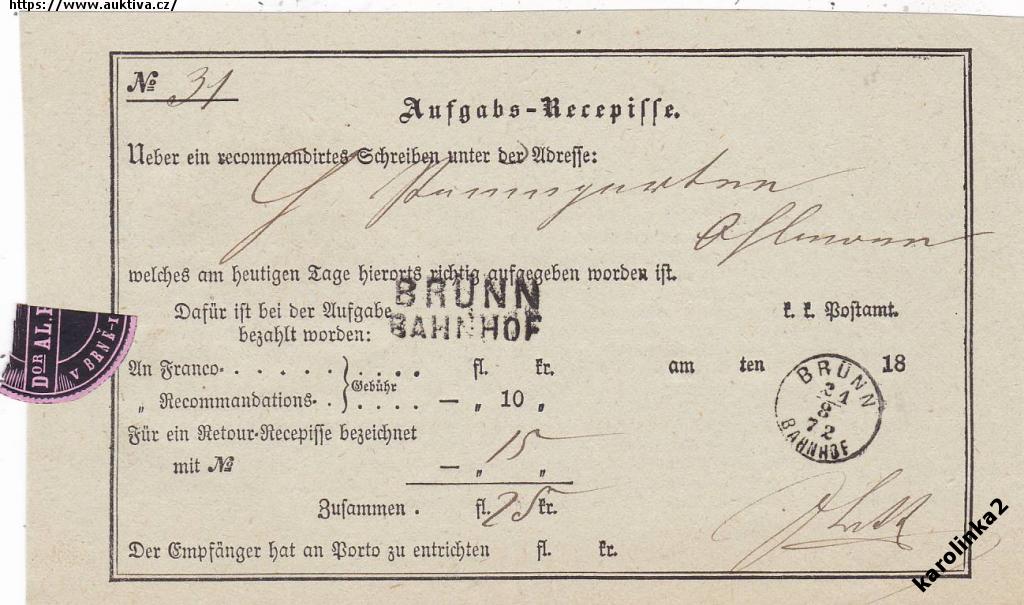 https://www.auktiva.cz/
№ 31
Aufgabs-Recepisse.
Ueber ein recommandirtes Schreiben unter der Adresse:
Baumgarten
welches am heutigen Tage hierorts richtig aufgegeben worden ist.
BRÜNN
BAHNHOF
Dafür ist bei der Aufgabe k. k. Postamt.
bezahlt worden:
An Franco. . . . . . . . . . fl. kr. am ten 18
„ Recommandations. . . . . . — „ 10 „
Gebühr
BRÜNN
21
8
72
BAHNHOF
Für ein Retour-Recepisse bezeichnet
mit № — „ 15 „
Zusammen . fl. 25 kr.
Der Empfänger hat an Porto zu entrichten fl. kr.
DOR AL.
V BRNĚ-
karolinka2